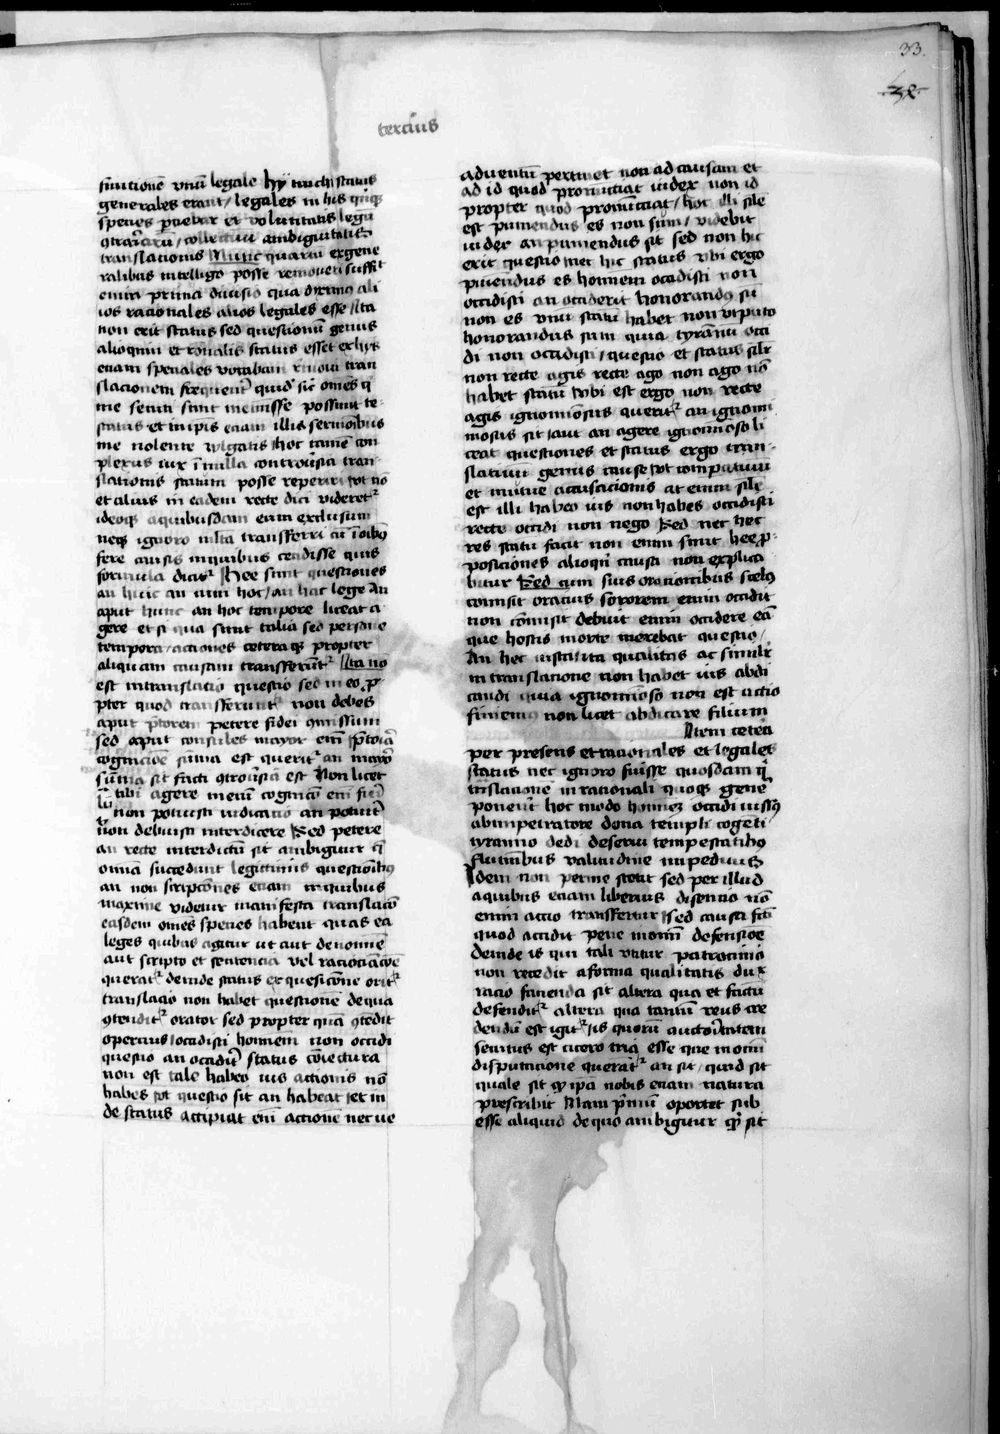 33.
tercius
finitionē vnū legale hy
generales erant / legales in his
species
translationis Nunc quartū exgene
ralibus intelligo posse remoueri suffit
enim prima diuisio qua diximus ali
ios racionales alios legales esse Ita
non erit status sed questionū genus
alioquin et rōnalis status esset ex hys
etiam speciales vocabam remoui tran
slacionem
me secuti sunt meminisse possunt te
status et in ipis etiam illis sermōibus
me nolente vlgatis hoc tamē con
plexus vix ī nulla controūsia tran
slationis statum posse reperiri vt nō
et alius in eadem recte dici videretᷣ
ideoqȝ aquibusdam eum exclusum
neqȝ ignoro multa transferri cū ī oībȝ
fere causis inquibus cecidisse quis
formula dicitᷣ Hee sunt questiones
an huic an cum hoc / an hac lege An
aput hunc an hoc tempore liceat a
gere et si qua sunt talia sed persone
tempora / actiones ceteraqȝ propter
aliquam causam transferūtᷣ Ita nō
est intranslatio questio sed in eo ꝓ
pter quod transferuntᷣ non debes
aput ptorem petere fidei ꝯmissum
sed aput consules maior enī
cognicōe sūma est queritᷣ an maior
sūma sit facti ꝯtroūsia est Non licet
tibi agere mecū cognicor enī
non potuisti iudicatio an potuerit
non debuisti interdicere Sed petere
an recte interdictū sit ambigitur
omīa succedunt legittimis questioībȝ
an non scripcōnes etiam inquibus
maxime videtur manifesta translacō
easdem omēs species habent quas ea
leges quibus agitur ut aut denomīe
aut scripto et sentencia vel raciocīacōe
queratᷣ deinde status ex questione oritᷣ
translatio non habet questionē dequa
ꝯtenditᷣ orator sed propter quā ꝯtēdit
opertius occidisti hominem non occidi
questio an occiderit status cōiectura
non est tale habeo ius actionis nō
habes vt questio sit an habeat et in
de status accipiat enī actionē nec ne
ad euentū pertinet non ad causam et
ad id quod pronunciat iudex non id
propter quod pronūciat / hoc illi sile
est puniendus es non sum / videbit
iudex an puniendus sit sed non hic
erit questio nec hic status vbi ergo
puniendus es hominem occidisti non
occidisti an occiderit honorandus sū
non es vnū statū habet non vt puto
honorandus sum quia tyrannū occi
di non occidisti / questio et status silr
non recte agis recte ago non ago nō
habet statū vbi est ergo non recte
agis ignominiosus queritᷣ an ignomi
niosus sit aut an agere ignominioso li
ceat questiones et status ergo tran
slatiuū genus cause vt comparatiuū
et mutue accusacionis at enim silr
est illi habeo ius non habes occidisti
recte occidi non nego Sed nec hec
res statū facit non enim sunt hee ꝓ
posiciones alioqn̄ causa non explica
bitur Sed cum suis oracionibus scelꝰ
comisit oracius sororem enim occidit
non cōmisit debuit enim occidere eā
que hostis morte merebat questio /
An hec iusta / ita qualitas ac similr
in translatione non habet ius abdi
candi quia ignominioso non est actio
finiemꝰ non licet abdicare filium
Item cetera
per presens et racionales et legales
status nec ignoro fuisse quosdam q̄
trāslationē in racionali quoqȝ genere
ponerent hoc modo hominē occidi iussꝰ
abimperatore dona templi cogenti
tyranno dedi deserui tempestatibȝ
fluminibus valitudine impedituS
Idem non perme stetit sed per illud
aquibus etiam liberius disentio nō
enim actio transfertur sed causa fcī
quod accidit pene in omī defensiōe
deinde is qui tali vtitur patrocinio
non recedit aforma qualitatis dux
racio facienda sit altera qua et factū
defenditᷣ altera qua tantū reus cre
dendū est igitᷣ is quorū auctoritatem
secutus est cicero tria esse que in omī
disputacione querātᷣ an sit / quid sit
quale sit qꝭ ipā nobis etiam natura
prescribit Nam pmū oportet sub
esse aliquid de quo ambigitur qꝭ sit